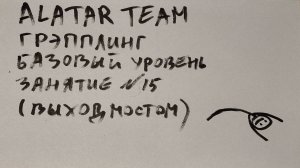 ALATAR TEAM
ГРЭППЛИНГ
БАЗОВЫЙ УРОВЕНЬ
ЗАНЯТИЕ №15
(ВЫХОД МОСТОМ)